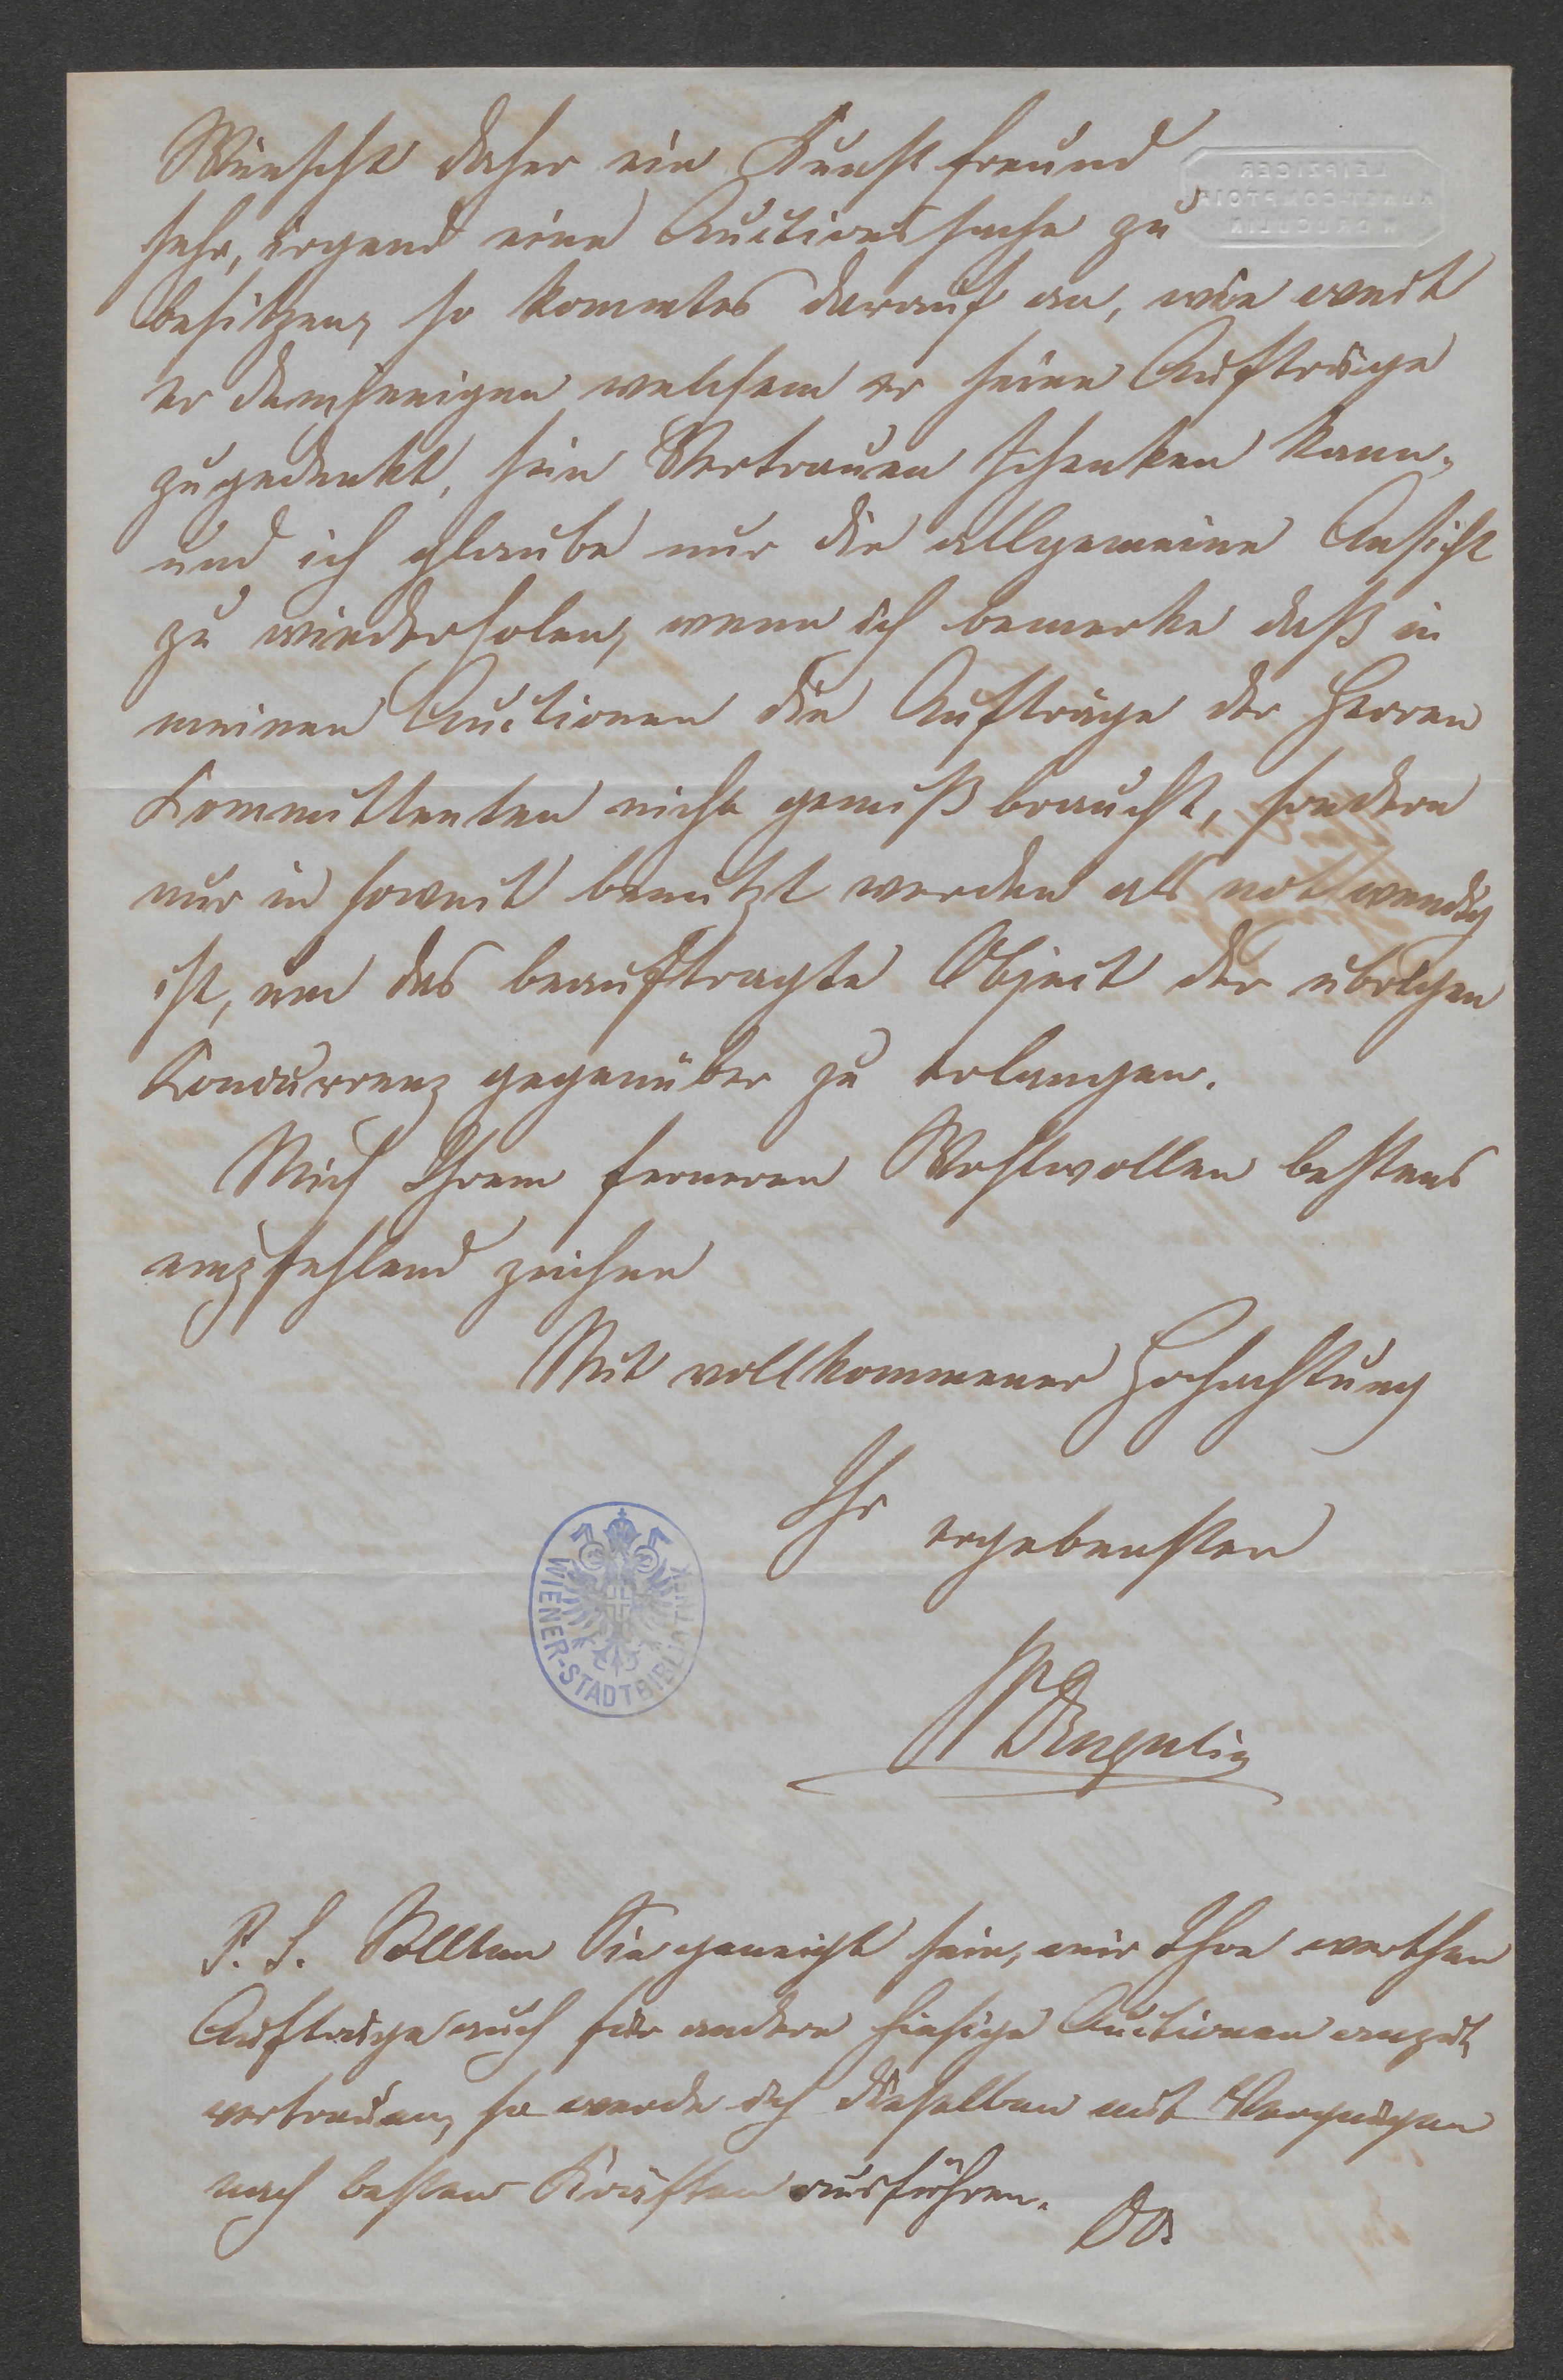 Wünscht daher ein Kunstfreund
sehr, irgend eine Auctionssache zu
besitzen, so kommt es darauf an, wie weit
er demjenigen welchem er seine Aufträge
zugedenkt, sein Vertrauen schenken kann,
und ich glaube nur die allgemeine Ansicht
zu wiederholen, wenn ich bemerke daß in
meinen Auctionen die Aufträge der Herren
Committenten nicht gemißbraucht, sondern
nur in soweit benutzt werden als notwendig
ist, um das beauftragte Object der übrigen
Concurrenz gegenüber zu erlangen.
Mich Ihrem ferneren Wohlwollen bestens
empfehlend zeichne
Mit vollkommener Hochachtung
Ihr ergebenster
W Drugulin
P. S. Sollten Sie geneigt sein, mir Ihre werthen
Aufträge auch für andere hiesige Auctionen anzu
vertrauen, so werde ich dieselben mit Vergnügen
nach besten Kräften ausführen.
LEIPZIGER
KUNST-COMPTOIR
W DRUGULIN
WIENER-STADTBIBLIOTHEK